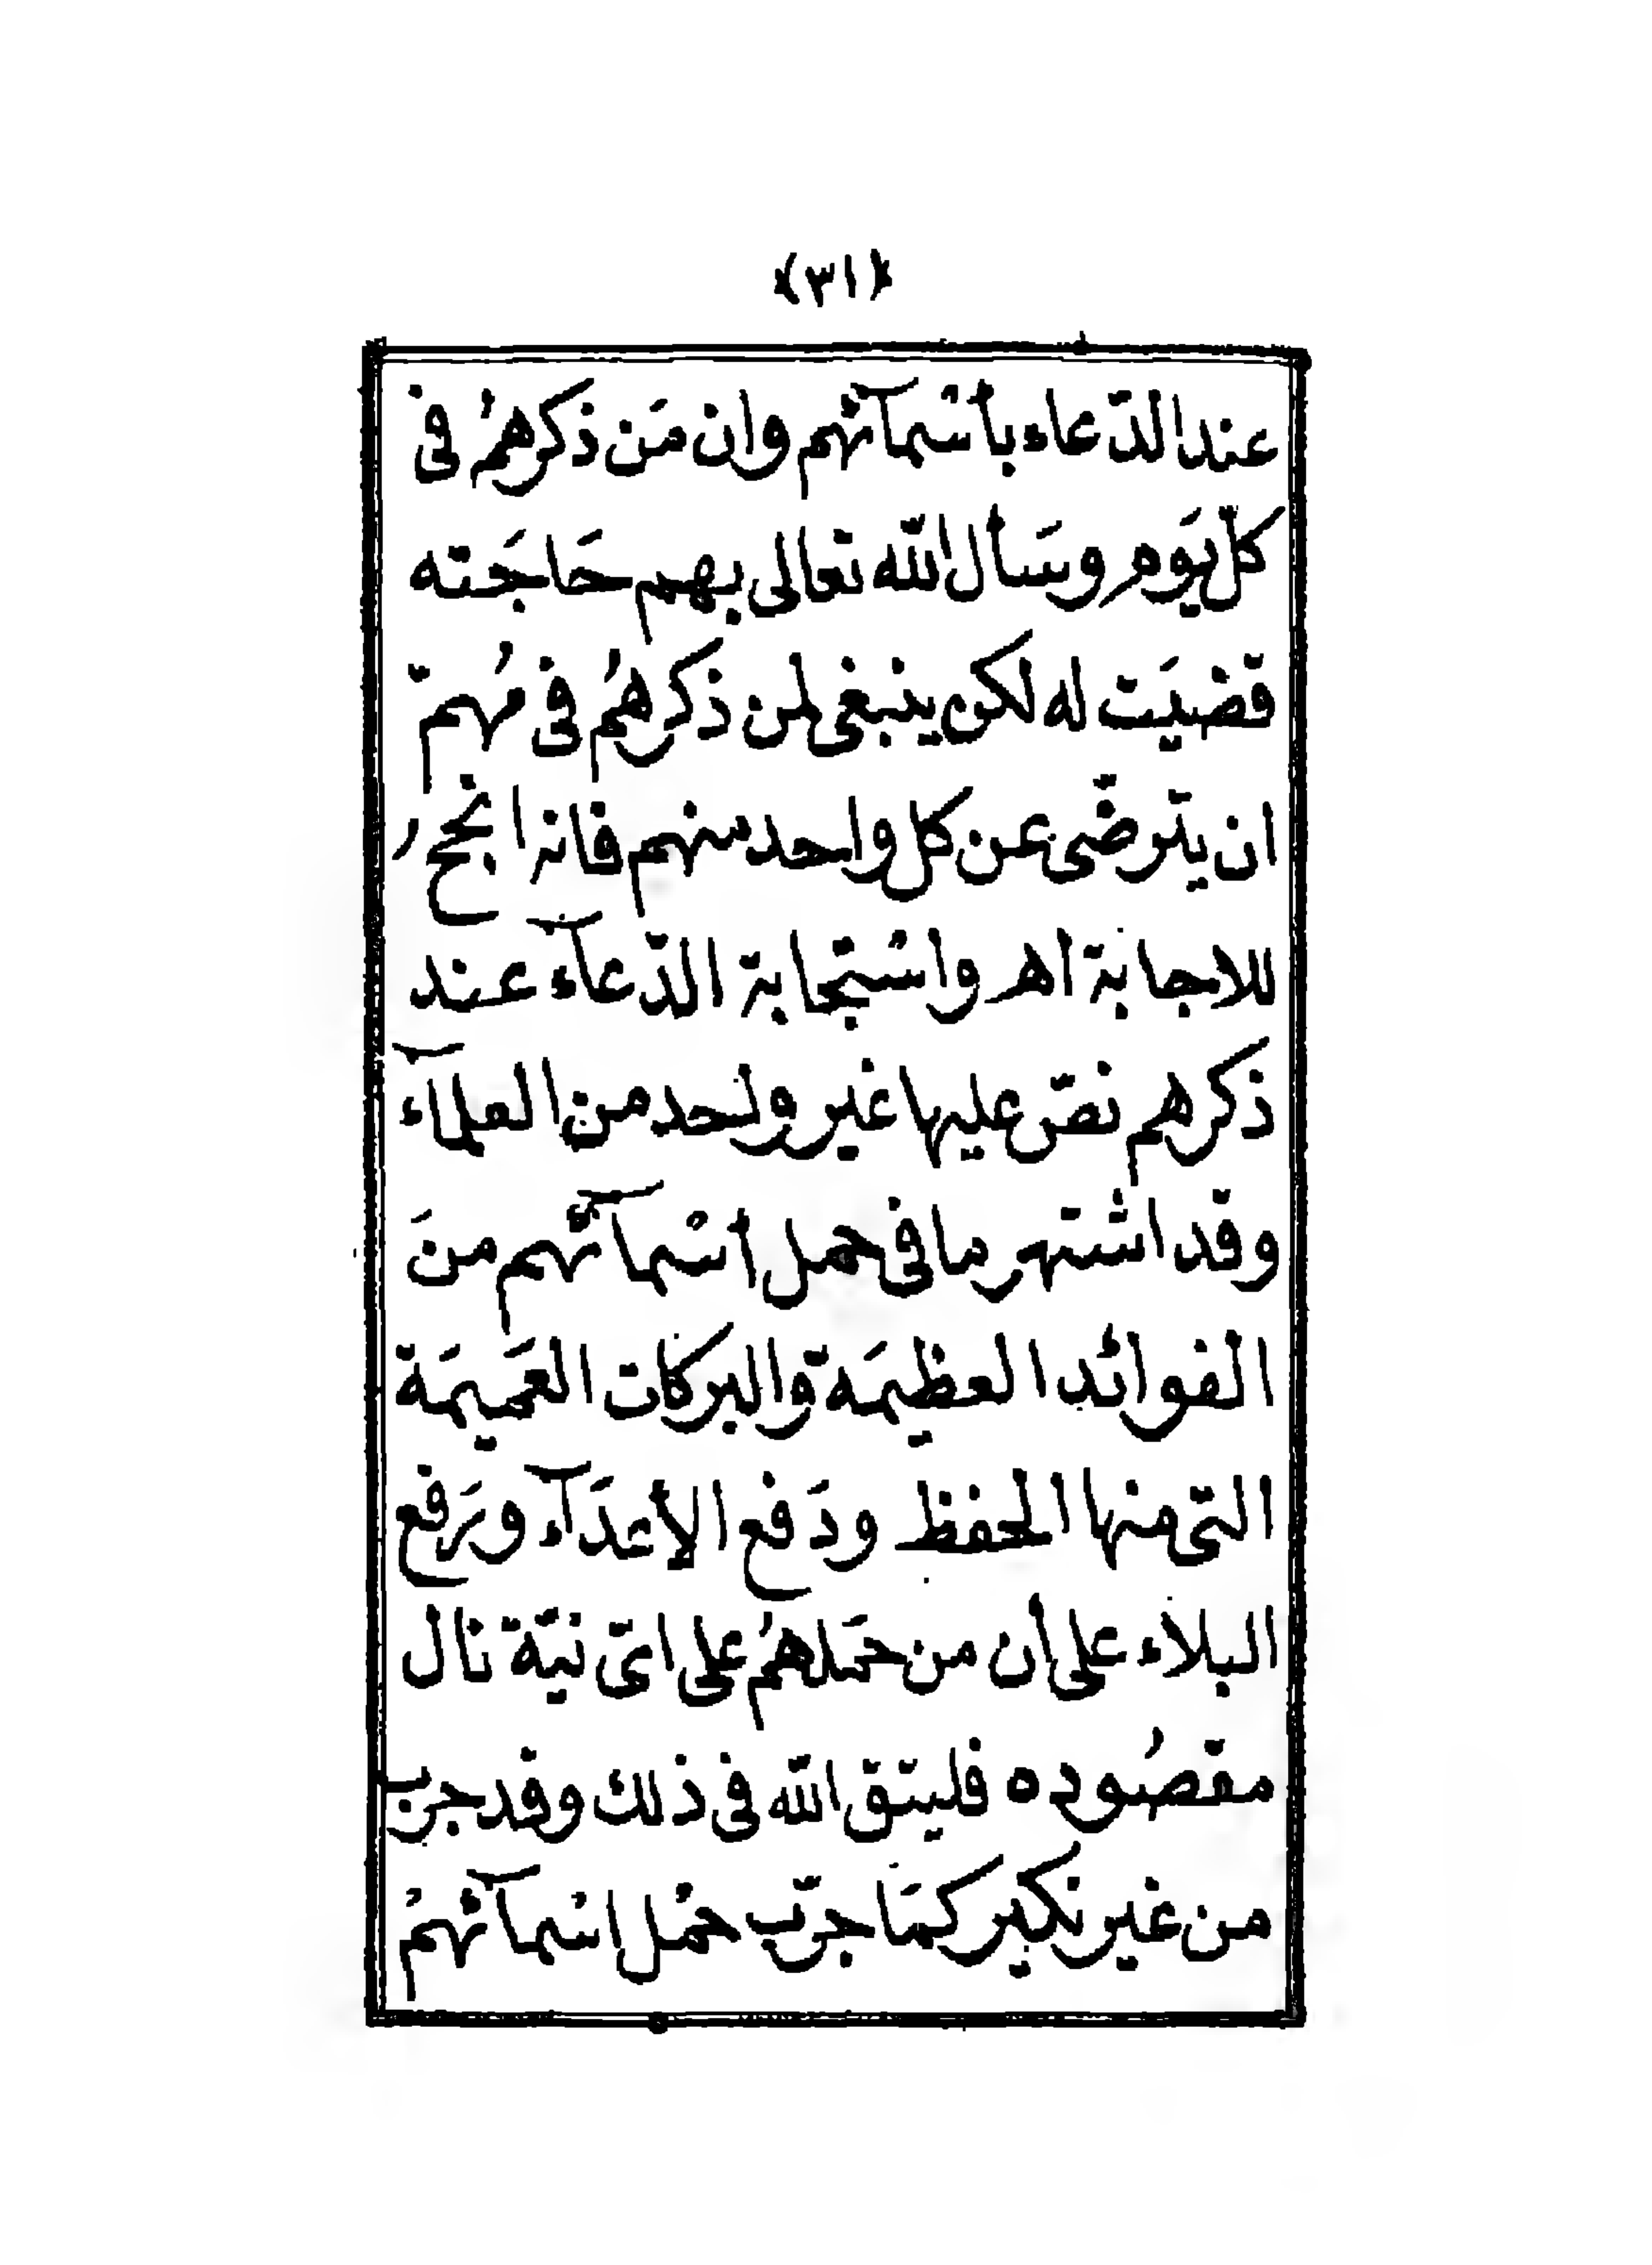 ﴿٣١﴾
عند الدّعاء بأسْمآئهم وان مَن ذكرهمُ فى
كلّ يَوم وسَأل اللّٰه تعالى بهم حَاجَته
قضيَت له لكن ينبغى لمن ذكرهمُ فى مُهمّ
ان يترضّى عن كل واحد منهم فانه انجح
للاجابة اھ واسْتجابة الدّعآء عند
ذكرهم نصّ عليها غير واحد من العلمآء
وقد اشتهر ما فى حمل اسْمآئهم منَ
الفوائد العظيمَة والبركات العَميمَة
التى منها الحفظ ودَفع الأعدَآء ورَفع
البلاء على أن من حَملهمُ على اىّ نيّة نال
مقصُوده فليتق اللّٰه فى ذلك وقد جرب
من غير نكير كمَا جرّب حمْل اسْمآئهمُ